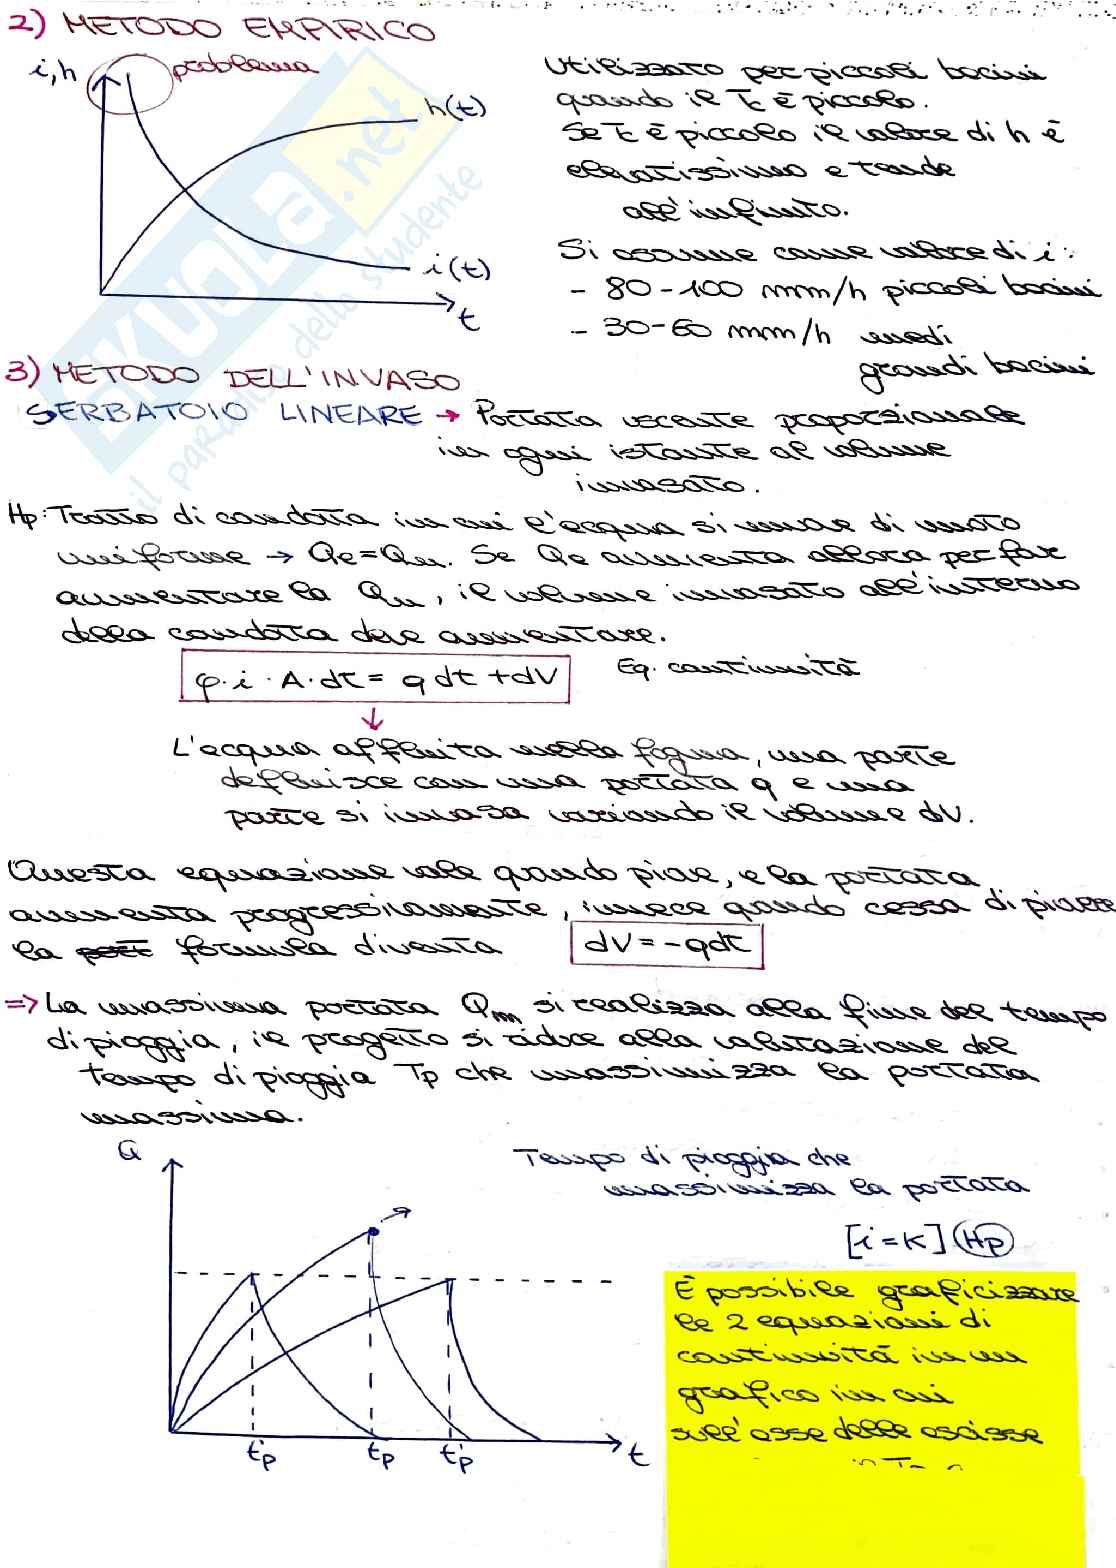 2) METODO EMPIRICO
i, h
problema
h(t)
i(t)
t
Utilizzato per piccoli bacini
quando il Tc è piccolo.
Se Tc è piccolo il valore di h è
elevatissimo e tende
all'infinito.
Si assume come valore di i:
- 80-100 mm/h piccoli bacini
- 30-60 mm/h medi
grandi bacini
SKUOLA.net
il paradiso dello studente
3) METODO DELL'INVASO
SERBATOIO LINEARE → Portata uscente proporzionale
in ogni istante al volume
invasato.
Hp: Tratto di condotta in cui l'acqua si muove di moto
uniforme → Qe=Qu. Se Qe aumenta allora per far
aumentare la Qu, il volume invasato all'interno
della condotta deve aumentare.
φ·i·A·dt = qdt + dV
Eq. continuità
L'acqua affluita nella fogna, una parte
defluisce con una portata q e una
parte si invasa variando il volume dV.
Questa equazione vale quando piove, e la portata
aumenta progressivamente, invece quando cessa di piovere
la port formula diventa
dV = -qdt
=> La massima portata Qm si realizza alla fine del tempo
di pioggia, il progetto si riduce alla valutazione del
tempo di pioggia Tp che massimizza la portata
massima.
Q
t'p
tp
t'p
t
Tempo di pioggia che
massimizza la portata
[i=K] (Hp)
È possibile graficizzare
le 2 equazioni di
continuità in un
grafico in cui
sull'asse delle ascisse